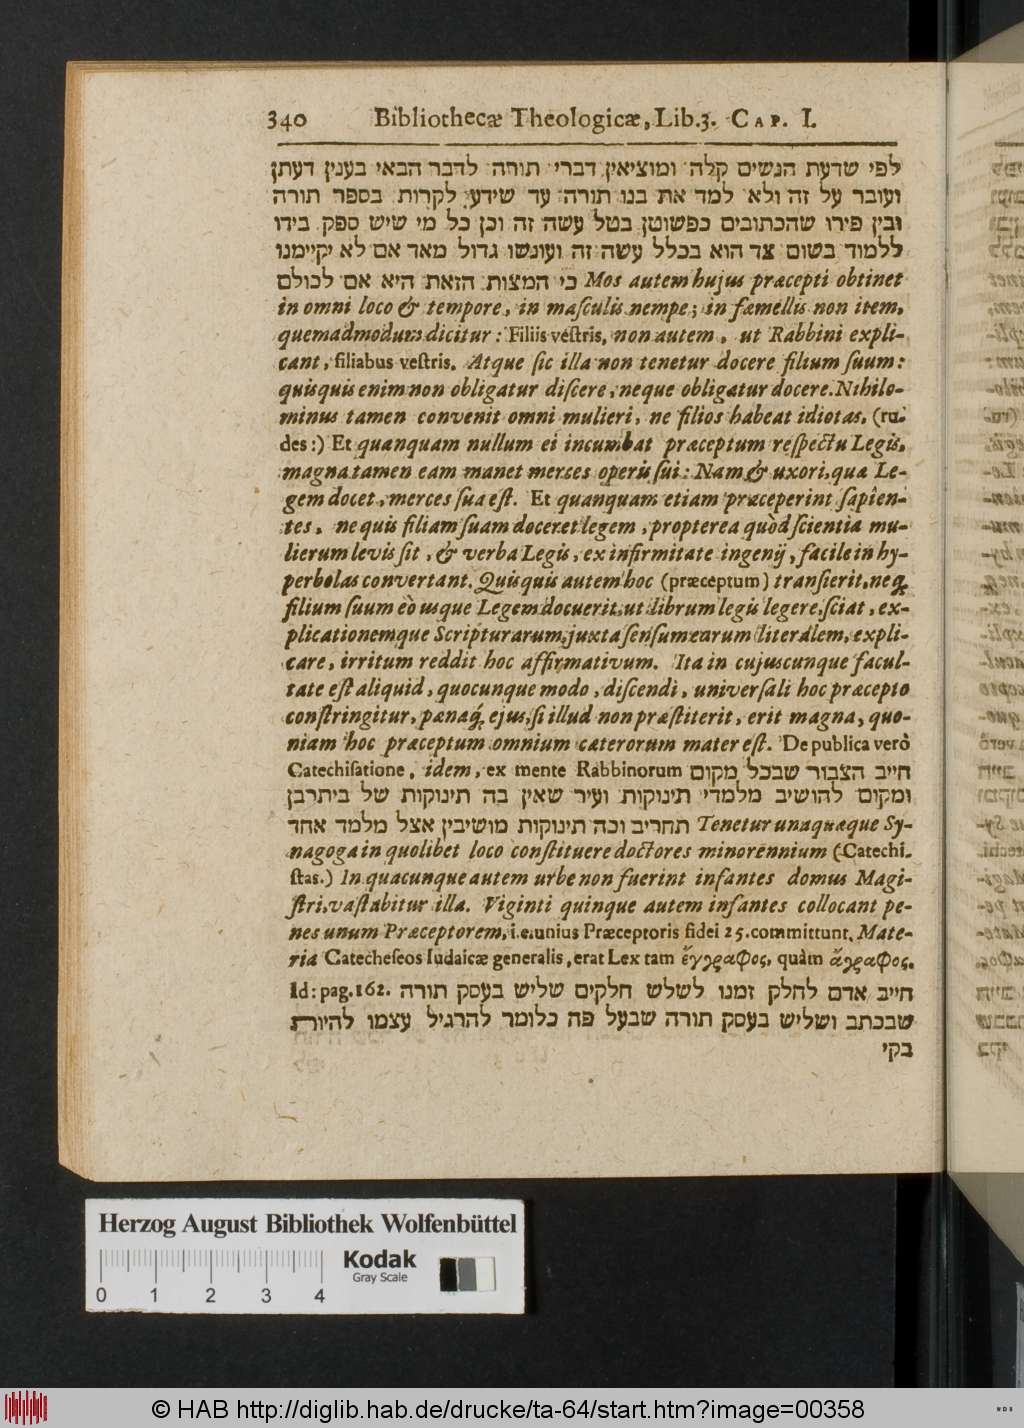 340 Bibliothecæ Theologicæ, Lib.3. CAP. I.
לפי שדעת הנשים קלה ומוציאין דברי תורה לדבר הבאי בענין דעתן
ועובר על זה ולא למד את בנו תורה עד שידע לקרות בספר תורה
ובין פירו שהכתובים כפשוטן בטל עשה זה וכן כל מי שיש ספק בידו
ללמוד בשום צד הוא בכלל עשה זה ועונשו גדול מאד אם לא יקיימנו
כי המצות הזאת היא אם לכולם Mos autem hujus præcepti obtinet
in omni loco & tempore, in maſculis nempe; in fæmellis non item,
quemadmodum dicitur: Filiis veſtris, non autem, ut Rabbini expli-
cant, filiabus veſtris. Atque ſic illa non tenetur docere filium ſuum:
quisquis enim non obligatur diſcere, neque obligatur docere. Nihilo-
minus tamen convenit omni mulieri, ne filios habeat idiotas, (ru-
des:) Et quanquam nullum ei incumbat præceptum reſpectu Legis,
magna tamen eam manet merces operis ſui: Nam & uxori, qua Le-
gem docet, merces ſua eſt. Et quanquam etiam præceperint ſapien-
tes, ne quis filiam ſuam doceret legem, propterea quòd ſcientia mu-
lierum levis ſit, & verba Legis, ex infirmitate ingenij, facile in hy-
perbolas convertant. Quisquis autem hoc (præceptum) tranſierit, neq́;
filium ſuum eò usque Legem docuerit, ut librum legis legere, ſciat, ex-
plicationemque Scripturarum, juxta ſenſum earum literalem, expli-
care, irritum reddit hoc affirmativum. Ita in cujuscunque facul-
tate eſt aliquid, quocunque modo, diſcendi, univerſali hoc præcepto
conſtringitur, pœnaq́; ejus, ſi illud non præſtiterit, erit magna, quo-
niam hoc præceptum omnium cæterorum mater eſt. De publica verò
Catechiſatione, idem, ex mente Rabbinorum חייב הצבור שבכל מקום
ומקום להושיב מלמדי תינוקות ועיר שאין בה תינוקות של ביתרבן
תחריב וכה תינוקות מושיבין אצל מלמד אחד Tenetur unaquæque Sy-
nagoga in quolibet loco conſtituere doctores minorennium (Catechi-
ſtas.) In quacunque autem urbe non fuerint infantes domus Magi-
ſtri, vaſtabitur illa. Viginti quinque autem infantes collocant pe-
nes unum Præceptorem, i.e. unius Præceptoris fidei 25. committunt. Mate-
ria Catecheſeos Iudaicæ generalis, erat Lex tam ἔγγραφος, quàm ἄγραφος.
Id: pag. 162. חייב אדם לחלק זמנו לשלש חלקים שליש בעסק תורה
שבכתב ושליש בעסק תורה שבעל פה כלומר להרגיל עצמו להיות
בקי
Herzog August Bibliothek Wolfenbüttel
Kodak
Gray Scale
0 1 2 3 4
© HAB http://diglib.hab.de/drucke/ta-64/start.htm?image=00358